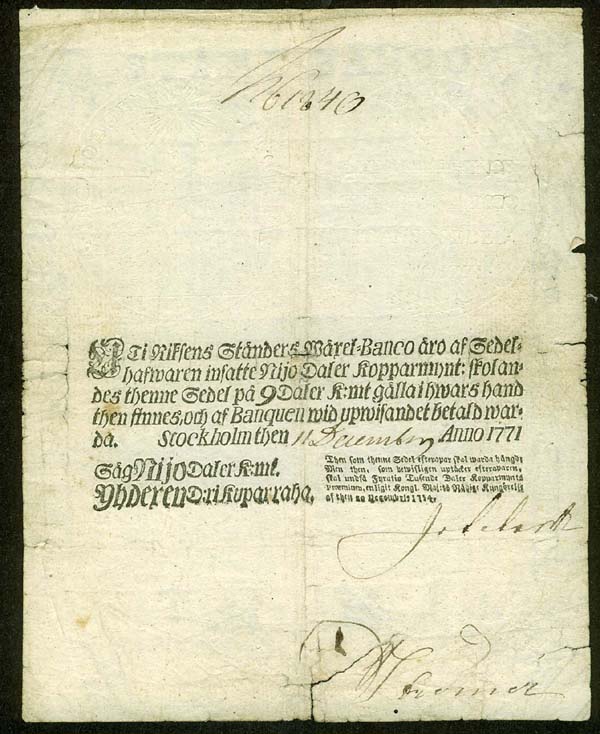 UTi Riksens Ständers Wäxel-Banco äro af Sedel-
hafwaren insatte Nijo Daler Kopparmynt: skolan-
des thenne Sedel på 9 Daler K:mt gälla i hwars hand
then finnes, och af Banquen wid upwisandet betald war-
da. Stockholm then 11 December Anno 1771
Säg Nijo Daler K:mt.
Yhderen D:ri Kuparraha.
Then som thenne Sedel efterapar skal warda hängd:
Men then, som bewisligen uptäcker efteraparen,
skal undfå Fyratio Tusende Daler Kopparmynts
enligit Kongl. Maj:ts Nådige Kungörelse
af then